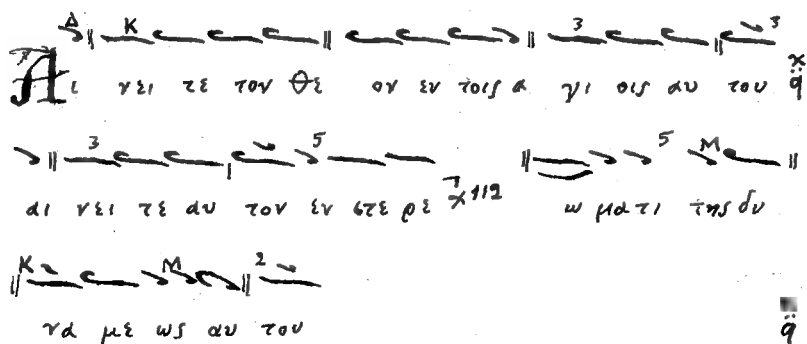 Δ Κ 3 3
Αι νει τε τον Θε ον εν τοις α γι οις αυ του χ q̈
3 5 5 Μ
αι νει τε αυ τον εν στε ρε 112 ω μα τι της δυ
Κ Μ 2
να με ως αυ του q̈